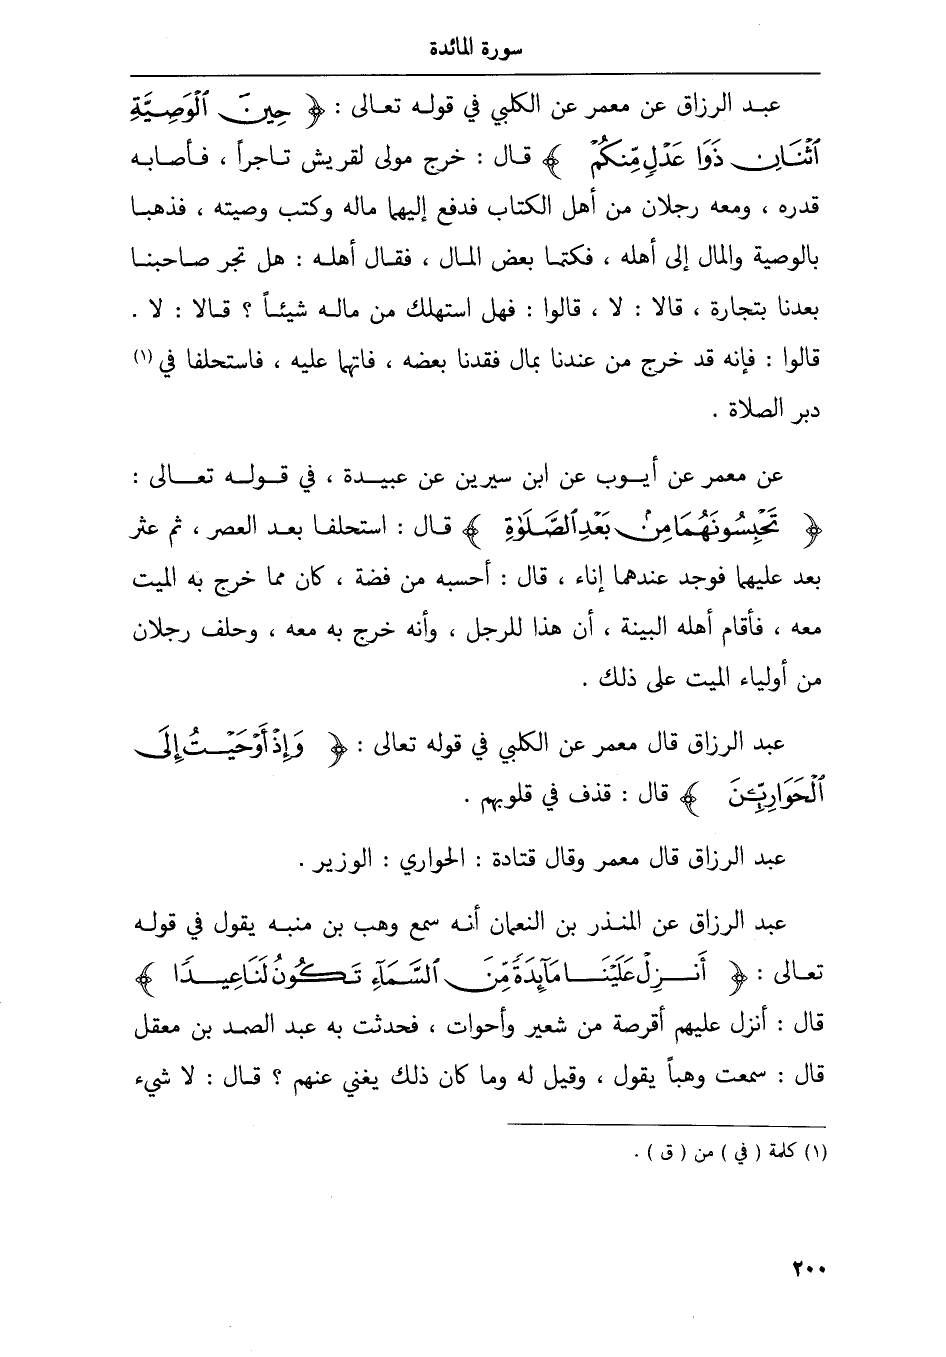 سورة المائدة
عبد الرزاق عن معمر عن الكلبي في قوله تعالى : ﴿ حِينَ ٱلْوَصِيَّةِ
ٱثْنَانِ ذَوَا عَدْلٍ مِّنكُمْ ﴾ قال : خرج مولى لقريش تاجراً ، فأصابه
قدره ، ومعه رجلان من أهل الكتاب فدفع إليهما ماله وكتب وصيته ، فذهبا
بالوصية والمال إلى أهله ، فكتما بعض المال ، فقال أهله : هل تجر صاحبنا
بعدنا بتجارة ، قالا : لا ، قالوا : فهل استهلك من ماله شيئاً ؟ قالا : لا .
قالوا : فإنه قد خرج من عندنا بمال فقدنا بعضه ، فاتهما عليه ، فاستحلفا في (١)
دبر الصلاة .
عن معمر عن أيوب عن ابن سيرين عن عبيدة ، في قوله تعالى :
﴿ تَحْبِسُونَهُمَا مِنۢ بَعْدِ ٱلصَّلَوٰةِ ﴾ قال : استحلفا بعد العصر ، ثم عثر
بعد عليهما فوجد عندهما إناء ، قال : أحسبه من فضة ، كان مما خرج به الميت
معه ، فأقام أهله البينة ، أن هذا للرجل ، وأنه خرج به معه ، وحلف رجلان
من أولياء الميت على ذلك .
عبد الرزاق قال معمر عن الكلبي في قوله تعالى : ﴿ وَإِذْ أَوْحَيْتُ إِلَى
ٱلْحَوَارِيِّـۧنَ ﴾ قال : قذف في قلوبهم .
عبد الرزاق قال معمر وقال قتادة : الحواري : الوزير .
عبد الرزاق عن المنذر بن النعمان أنه سمع وهب بن منبه يقول في قوله
تعالى : ﴿ أَنزِلْ عَلَيْنَا مَآئِدَةً مِّنَ ٱلسَّمَآءِ تَكُونُ لَنَا عِيدًا ﴾
قال : أنزل عليهم أقرصة من شعير وأحوات ، فحدثت به عبد الصمد بن معقل
قال : سمعت وهباً يقول ، وقيل له وما كان ذلك يغني عنهم ؟ قال : لا شيء
(١) كلمة ( في ) من ( ق ) .
٢٠٠